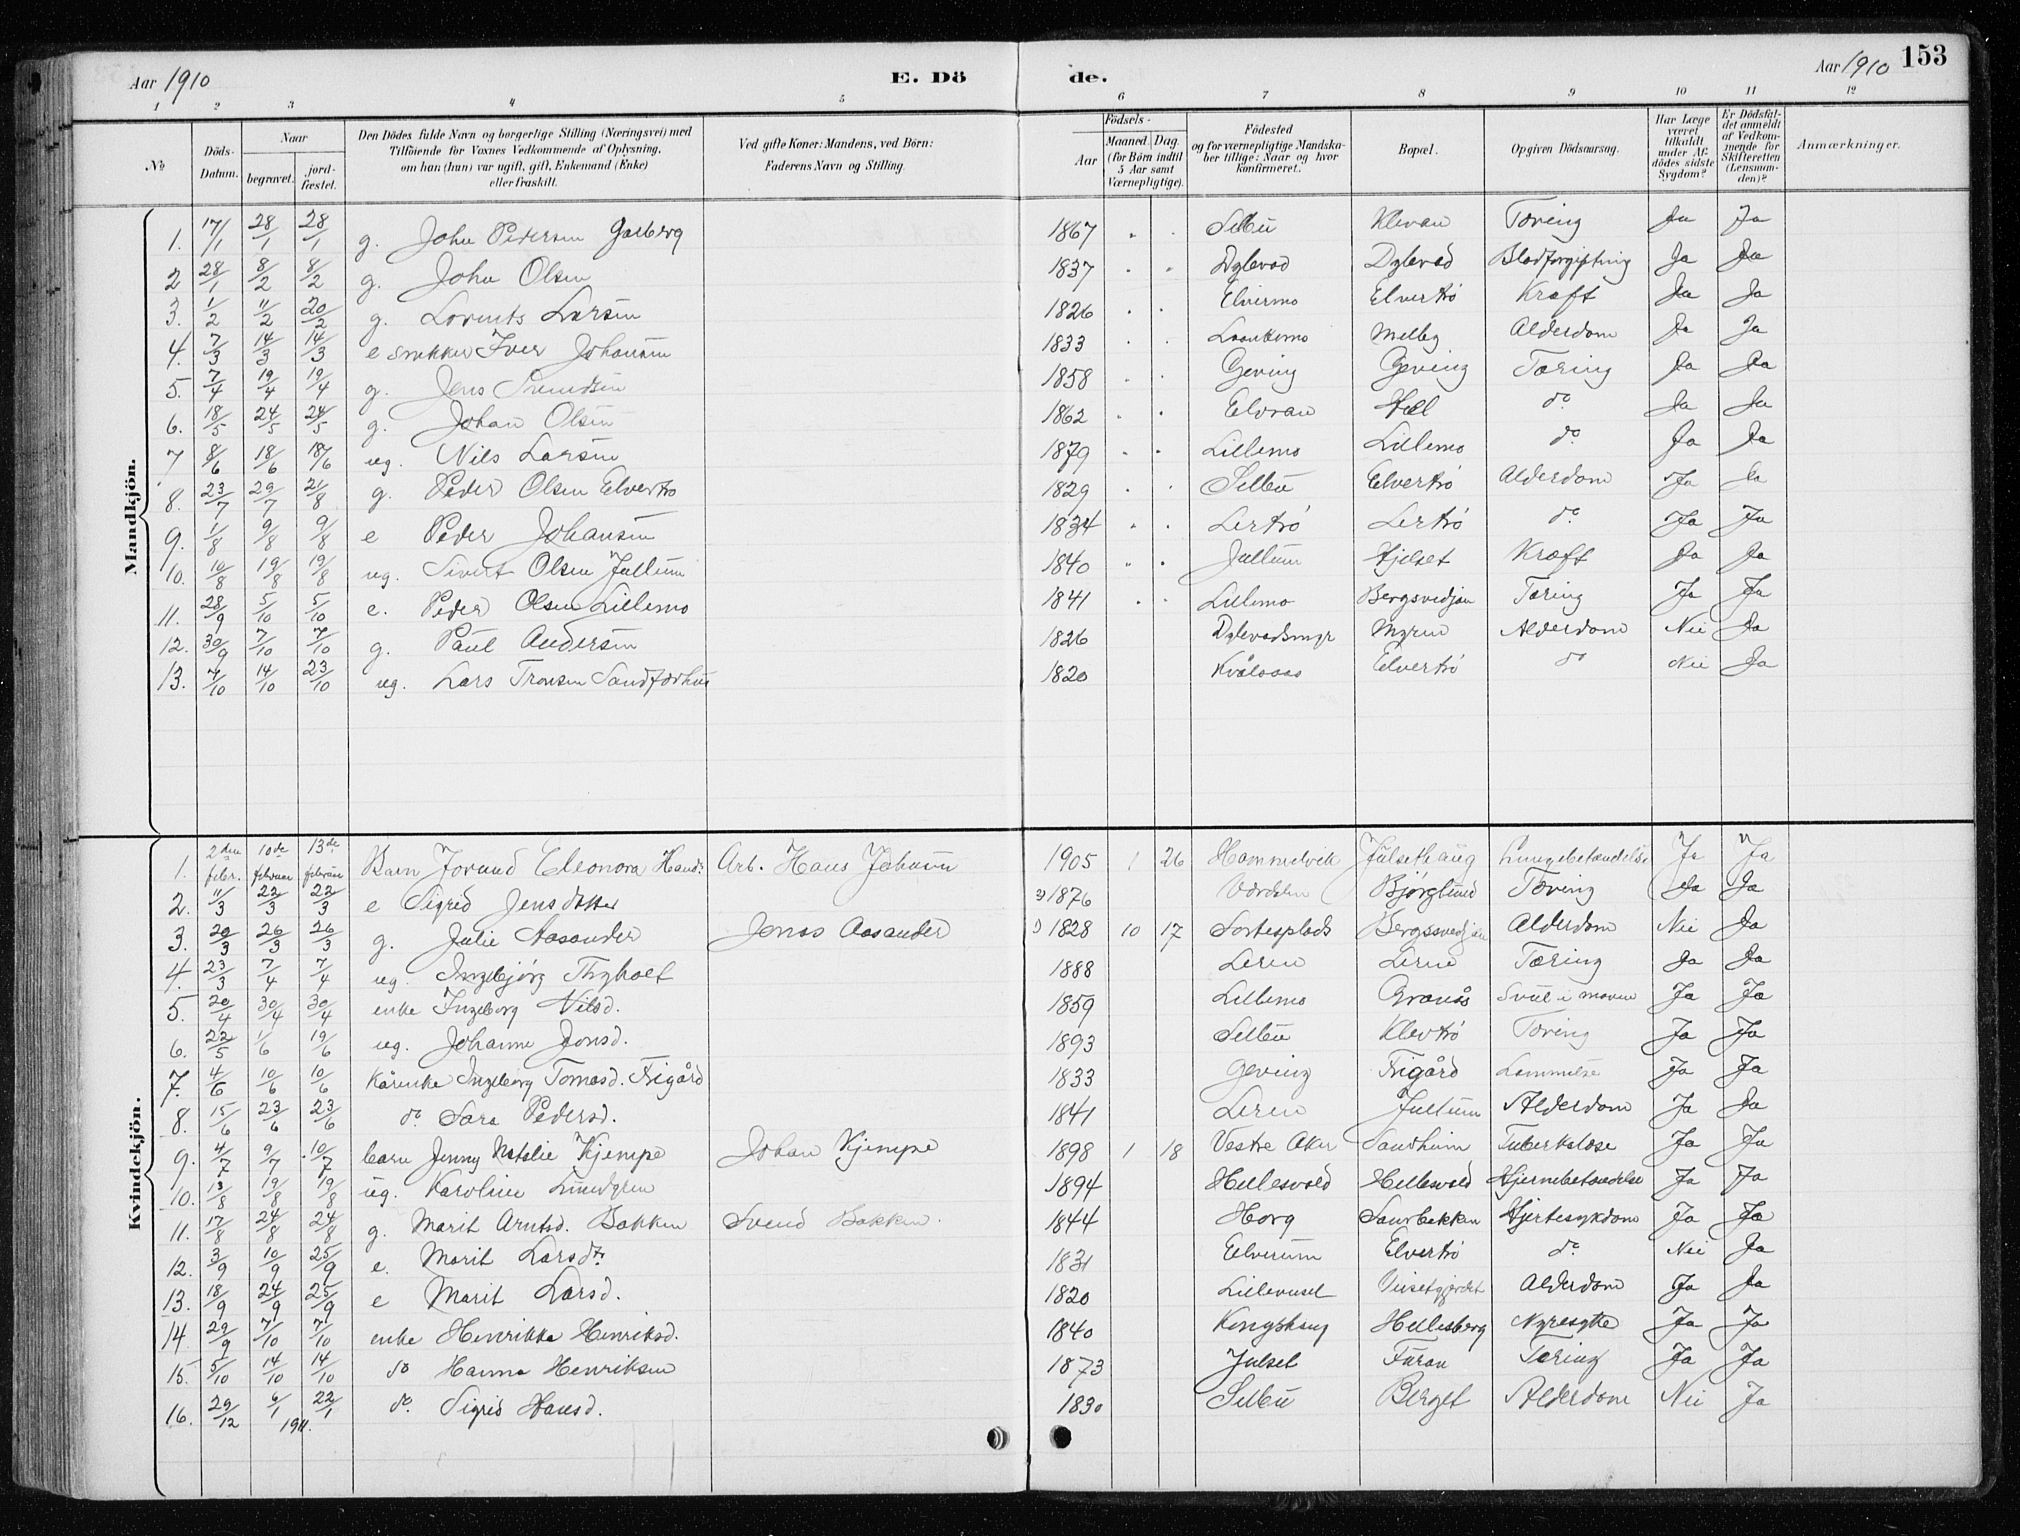 Aar 1910 E. Dö de. Aar 1910 153
1 2 3 4 5 6 7 8 9 10 11 12
No Döds-Datum. Naar begravet. jord-fæstet. Den Dödes fulde Navn og borgerlige Stilling (Næringsvei) med Tilföiende for Voxnes Vedkommende af Oplysning, om han (hun) var ugift, gift, Enkemand (Enke) eller fraskilt. Ved gifte Koner: Mandens, ved Börn: Faderens Navn og Stilling. Födsels- Aar Maaned. Dag. (for Börn indtil 5 Aar samt Værnepligtige). Födested og for værnepligtige Mandskaber tillige: Naar og hvor konfirmeret. Bopæl. Opgiven Dödsaarsag. Har Læge været tilkaldt under Afdödes sidste Sygdom? Er Dödsfaldet anmeldt af Vedkommende for Skifteretten (Lensmanden)? Anmærkninger.
Mandkjön.
1. 17/1 28/1 28/1 g. John Pedersen Garberg 1867 " " Selbu Klevan Tæring Ja Ja
2 28/1 8/2 8/2 g. John Olsen 1837 " " Dylevad Dylevad Blodforgiftning Ja Ja
3. 1/2 11/2 20/2 g. Lorents Larsen 1826 " " Elvermo Elvertrö Kræft Ja Ja
4. 7/3 14/3 14/3 e snekker Iver Johansen 1833 " " Laankemo Melby Alderdom Ja Ja
5. 7/4 19/4 19/4 g. Jens Svendsen 1858 " " Geving Geving Tæring Ja Ja
6. 18/5 24/5 24/5 g. Johan Olsen 1862 " " Elvran Hell do Ja Ja
7 8/6 18/6 18/6 ug. Nils Larsen 1879 " " Lillemo Lillemo do Ja Ja
8. 23/7 29/7 21/8 g. Peder Olsen Elvertrö 1829 " " Selbu Elvertrö Alderdom Ja Ja
9. 1/8 9/8 9/8 e Peder Johansen 1834 " " Lertrö Lertrö do Ja Ja
10. 10/8 19/8 19/8 ug. Sivert Olsen Jullum 1840 " " Jullum Hjelset Kræft Ja Ja
11. 28/9 5/10 5/10 e. Peder Olsen Lillemo 1841 " " Lillemo Bergsvedjan Tæring Ja Ja
12. 30/9 7/10 7/10 g. Paul Andersen 1826 Dylevadsmyr Myren Alderdom Nei Ja
13. 4/10 14/10 23/10 ug. Lars Tronsen Sandfærhus 1820 Kvålsaas Elvertrö do Nei Ja
Kvindekjön.
1. 2den febr. 10de februar 13de februar Barn Jorund Eleonora Hansd. Arb. Hans Johansen 1905 1 26 Hammelvik Julsethaug Lungebetændelse Ja Ja
2. 11/3 22/3 22/3 e Sigrid Jensdatter 1876 Værdalen Bjørglund Tæring Ja Ja
3. 20/3 26/3 26/3 g. Julie Aasander Jonas Aasander 1828 10 17 Sortesplads Bergsvedjan Alderdom Nei Ja
4. 23/3 7/4 7/4 ug. Ingebjørg Thyholt 1888 Leren Leren Tæring Ja Ja
5. 20/4 30/4 30/4 enke Ingeborg Nilsd. 1859 Lillemo Granås Svul i maven Ja Ja
6. 22/5 1/6 19/6 ug. Johanne Jonsd. 1893 Selbu Klevtrö Tæring Ja Ja
7. 4/6 10/6 10/6 Kårenke Ingeborg Tomasd. Frigård 1833 Geving Frigård Lammelse Ja Ja
8. 15/6 23/6 23/6 do Sara Pedersd. 1841 Leren Jullum Alderdom Ja Ja
9. 4/7 9/7 10/7 barn Jenny Natalie Kjempe Johan Kjempe 1898 1 18 Vestre Aker Sandheim Tuberkulose Ja Ja
10. 13/8 19/8 19/8 ug. Karoline Lundgren 1894 Hellesvold Hellesvold Hjernebetændelse Ja Ja
11. 17/8 24/8 24/8 g. Marit Arntsd. Bakken Svend Bakken. 1844 Horg Saurbekken Hjertesykdom Ja Ja
12. 3/9 10/9 25/9 e. Marit Larsdtr 1831 Elverum Elvertrö do Nei Ja
13. 18/9 24/9 25/9 e Marit Larsd. 1820 Lillevusel Viisetgjerdet Alderdom Ja Ja
14. 29/9 7/10 7/10 enke Henrikka Henriksd. 1840 Kongshaug Hellesberg Nyresytte Ja Ja
15. 5/10 14/10 14/10 do Hanna Henriksen 1873 Julset Furan Tæring Ja Ja
16. 29/12 6/1 22/1 do Sigrid Hansd. 1830 Selbu Berget Alderdom Nei Ja
1911.